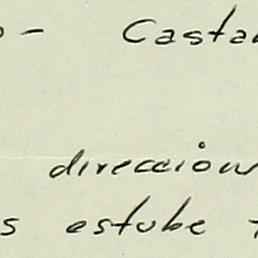 o- Casta
dirección
s estube